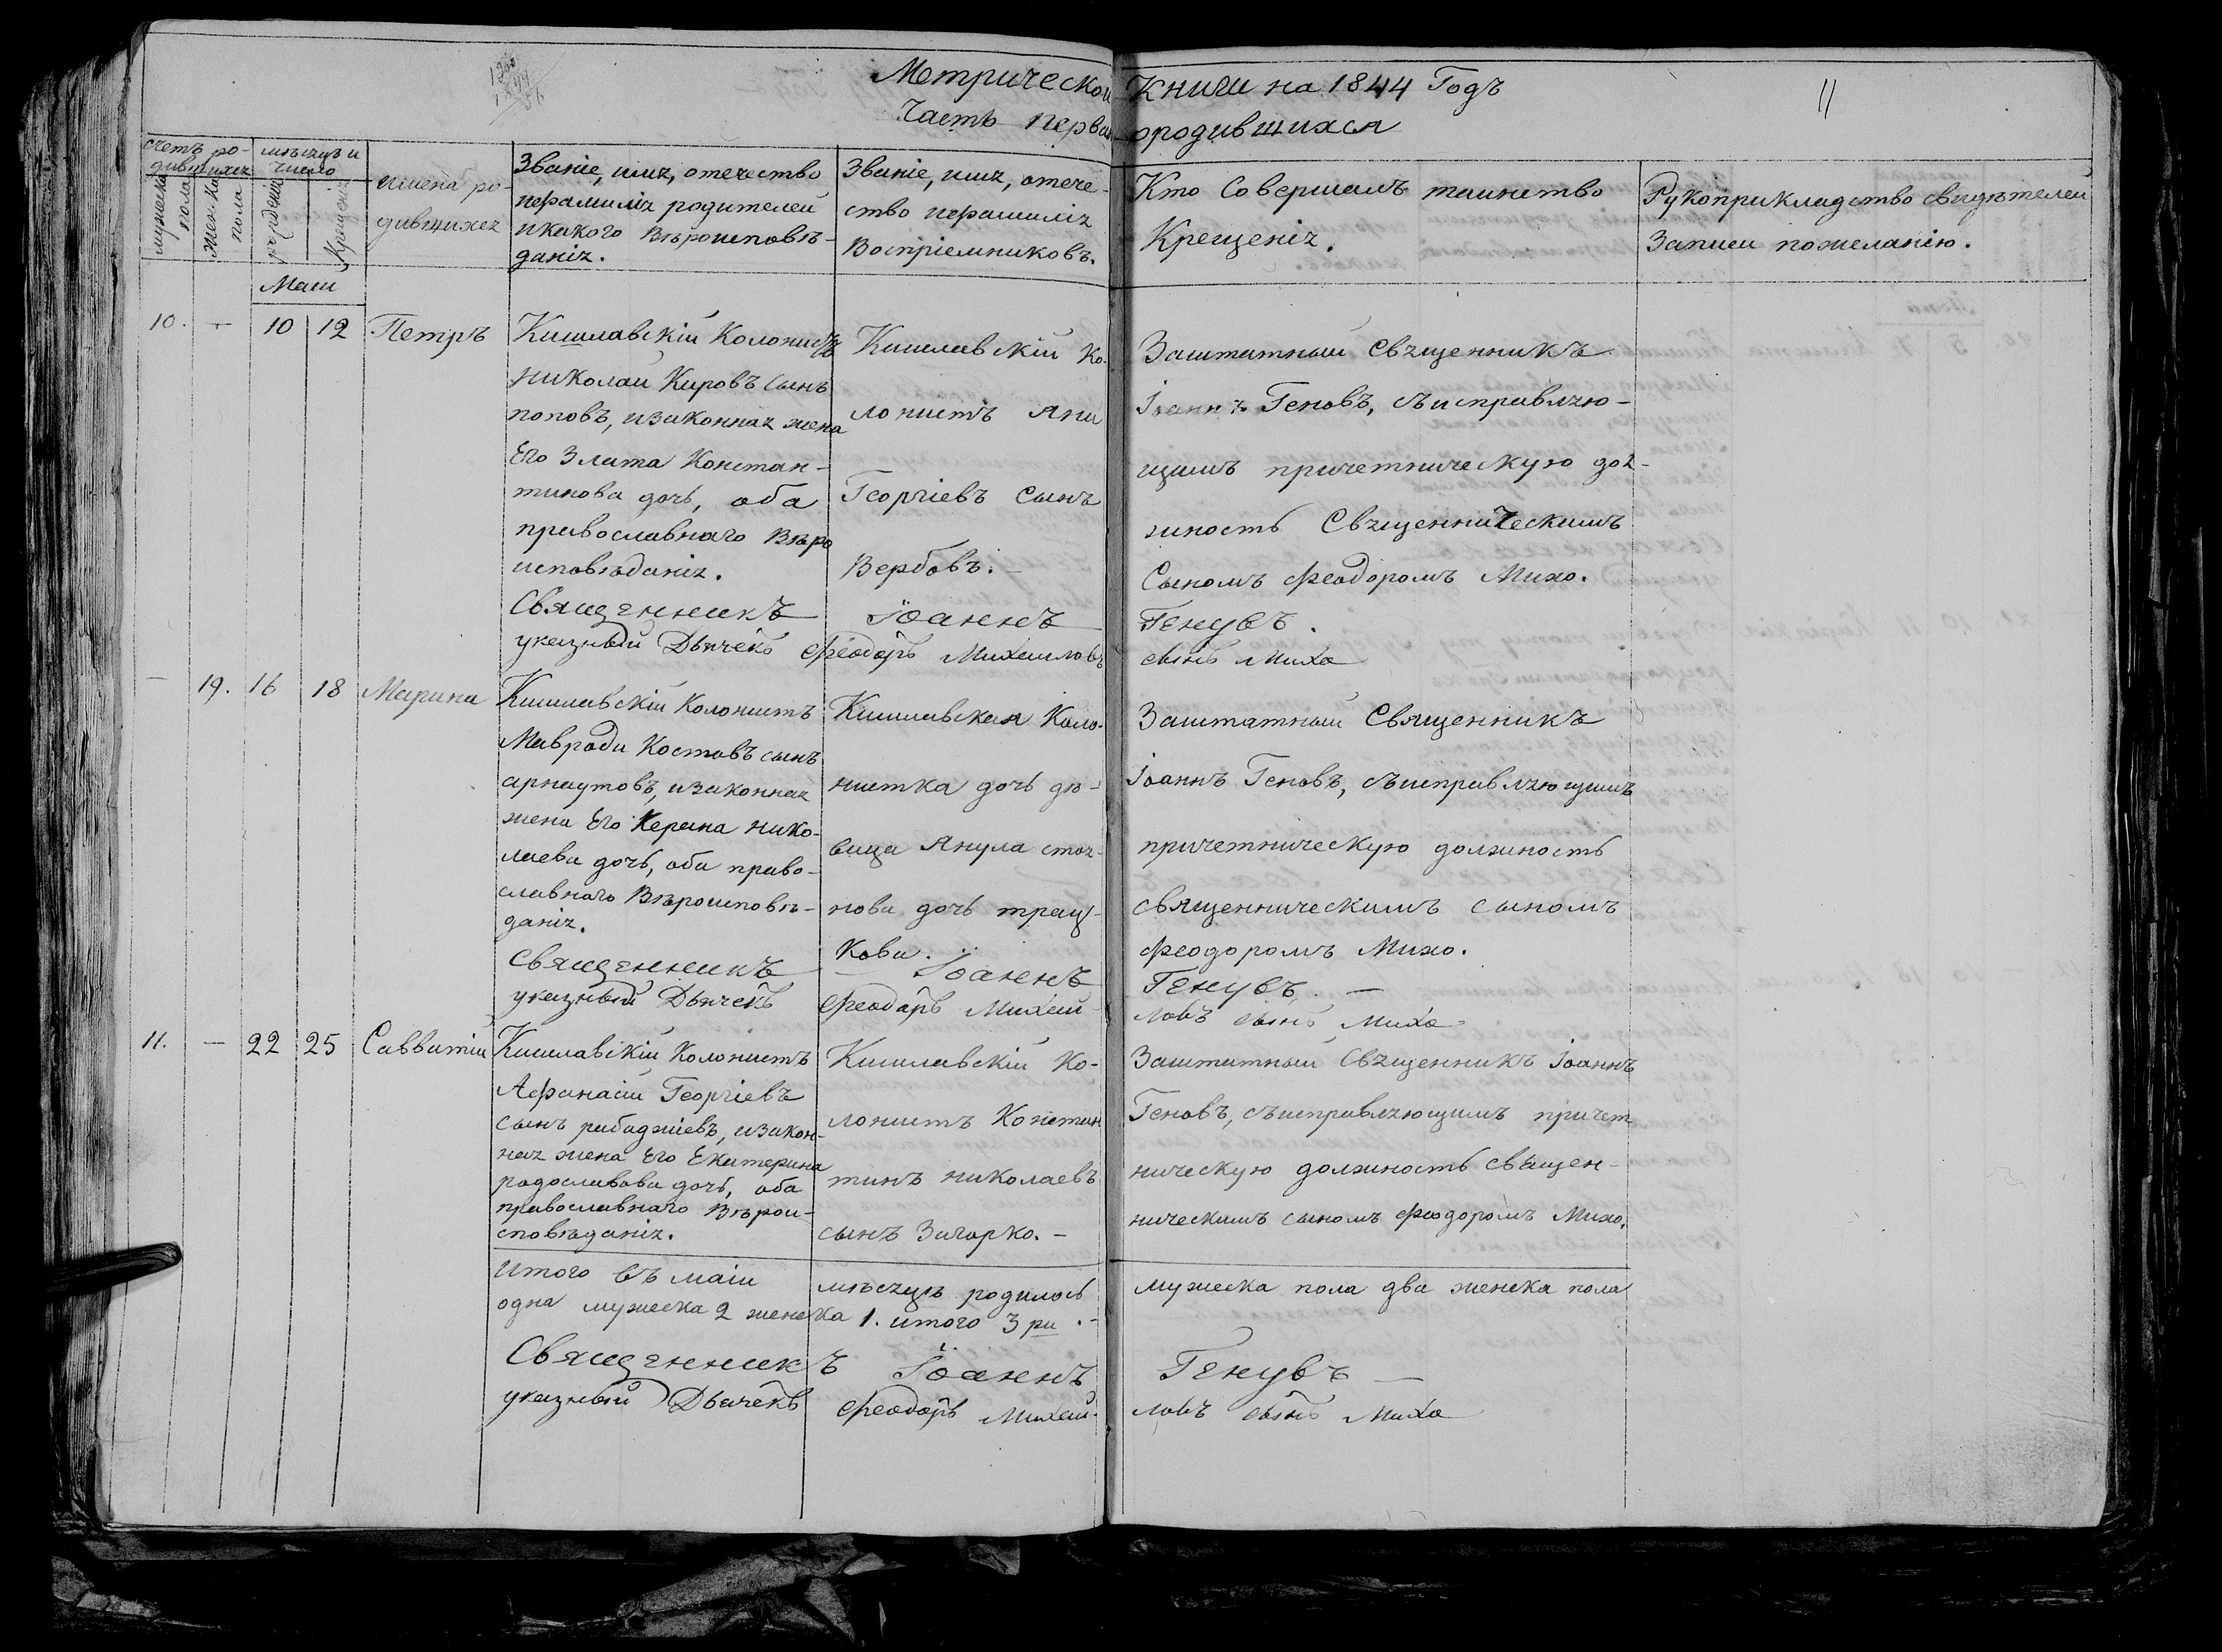 Метрической Книги на 1844 Годъ
11
Часть первая ородившихся
счетъ родившихся
мужеска пола
жен-ка пола
мѣсяцъ и число
рожденія
Крещенія
имена родившихся
Званіе, имя, отечество
ифамилія родителей
икакого Вѣроисповѣ-
данія.
Званіе, имя, отече-
ство ифамилія
Воспріемниковъ.
Кто Совершалъ таинство
Крещенія.
Рукоприкладство свидѣтелей
Записи пожеланію.
Маіи
10. — 10 12 Петръ
Кишлавскій Колонистъ
Николай Кировъ сынъ
поповъ, изаконная жена
Его Злата Констан-
тинова дочь, оба
православнаго Вѣро
исповѣданія.
Кишлавскій Ко-
лонистъ Яни
Георгіевъ Сынъ
Вербовъ.—
Заштатный Священникъ
Іоаннъ Геновъ, съисправляю-
щимъ причетническую дол-
жность Священническимъ
Сыномъ Феодоромъ Михо.
Священникъ Іоаннъ Генувъ.
указный Дьячекъ Феодоръ Михаиловъ сынъ Михо
— 19. 16 18 Марина
Кишлавскій Колонистъ
Мавроди Костовъ сынъ
арнаутовъ, изаконная
жена Его Керана нико-
лаева дочь, оба право-
славнаго Вѣроисповѣ-
данія.
Кишлавская Коло-
нистка дочь дѣ-
вица Янула стоя-
нова дочь трац-
кова.
Заштатный Священникъ
Іоаннъ Геновъ, съисправляющимъ
причетническую должность
священническимъ сыномъ
Феодоромъ Михо.
Священникъ Іоаннъ Генувъ. —
указный Дьячекъ Феодоръ Михаи-
ловъ сынъ Михо
11. — 22 25 Савватій
Кишлавскій Колонистъ
Афанасій Георгіевъ
сынъ рабаджіевъ, изакон-
ная жена Его Екатерина
радославова дочь, оба
православнаго Вѣрои-
сповѣданія.
Кишлавскій Ко-
лонистъ Констан
тинъ николаевъ
сынъ Загорко.—
Заштатный Священникъ Іоаннъ
Геновъ, съисправляющимъ причет
ническую должность священ-
ническимъ сыномъ Феодоромъ Михо.
Итого въ маіи мѣсяцѣ родилось мужеска пола два женска пола
одна мужеска 2 женска 1. итого 3 ри.—
Священникъ Іоаннъ Генувъ —
указный Дьячекъ Феодоръ Михаи-
ловъ сынъ Михо